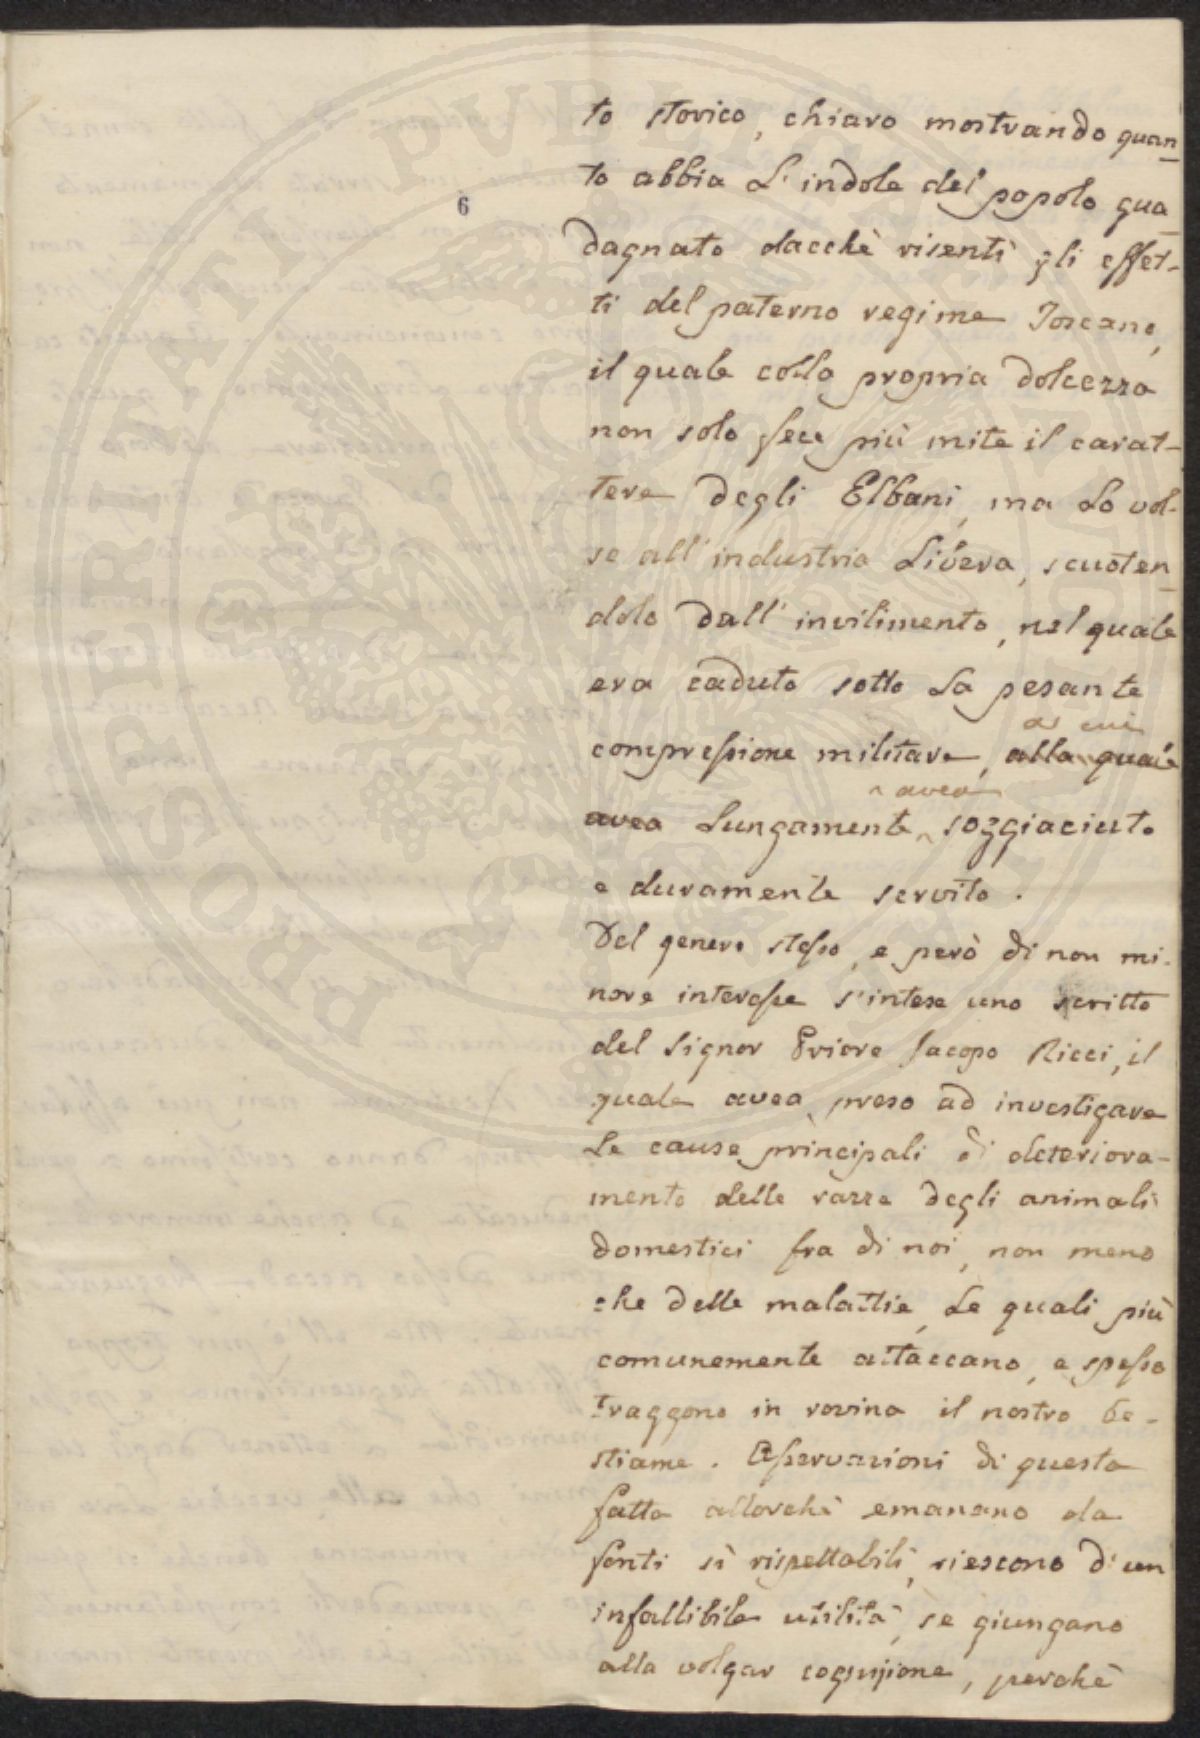 6
to storico, chiaro mostrando quan
to abbia l'indole del popolo gua
dagnato dacchè risentì gli effet-
ti del paterno regime Toscano,
il quale colla propria dolcezza
non solo fece più mite il carat-
tere degli Elbani, ma lo vol-
se all'industria libera, scuoten
dolo dall'invilimento, nel quale
era caduto sotto la pesante
a cui
compressione militare, alla quale
avea
avea lungamente soggiaciuto
e duramente servito.
Del genere stesso, e però di non mi-
nore interesse s'intese uno scritto
del Signor Priore Jacopo Ricci, il
quale avea preso ad investigare
le cause principali di deteriora-
mento delle razze degli animali
domestici fra di noi, non meno
che delle malattie, le quali più
comunemente attaccano, e spesso
traggono in rovina il nostro be-
stiame. Osservazioni di questa
fatta allorchè emanano da
fonti sì rispettabili, riescono d'un
infallibile utilità, se giungano
alla volgar cognizione, perchè
POSPERITATI PVBLICAE